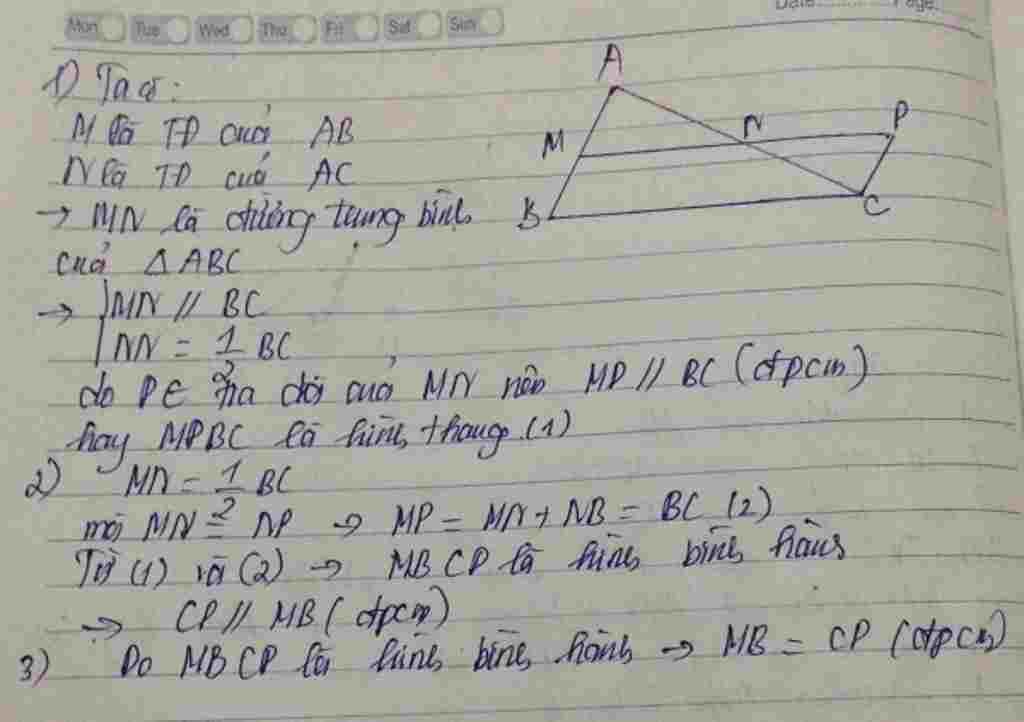 Mon Tue Wed Thu Fri Sat Sun
Date: Page:
1) Ta có:
M là TĐ của AB
N là TĐ của AC
→ MN là đường trung bình
của △ABC
A
M
N
P
B
C
→ MN // BC
MN = 1/2 BC
do P ∈ tia đối của MN nên MP // BC (đpcm)
hay MPBC là hình thang (1)
2) MN = 1/2 BC
mà MN = NP → MP = MN + NB = BC (2)
Từ (1) và (2) → MBCP là hình bình hành
→ CP // MB (đpcm)
3) Do MBCP là hình bình hành → MB = CP (đpcm)